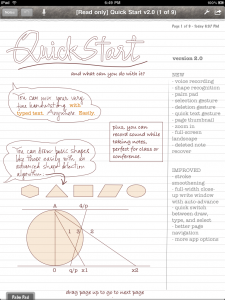 iPad
5:49 PM
[Read only] Quick Start v2.0 (1 of 9)
Page 1 of 9 - Today 5:27 PM
Quick Start
and what can you do with it?
version 2.0
You can mix your very
fine handwriting with
typed text. Anywhere. Easily.
plus, you can
record sound while
taking notes,
perfect for class or
conference.
You can draw basic shapes
like these easily with an
advanced shape detection
algorithm
NEW
- voice recording
- shape recognition
- paint pad
- selection gesture
- deletion gesture
- quick text gesture
- page thumbnail
- zoom in
- full-screen
landscape
- deleted note
recover
IMPROVED
- stroke
smoothening
- full width close-
up write window
with auto-advance
- quick switch
between draw,
type, and select
- better page
navigation
- more app options
A q/p
1 2 3
O q/p x1 x2
drag page up to go to next page